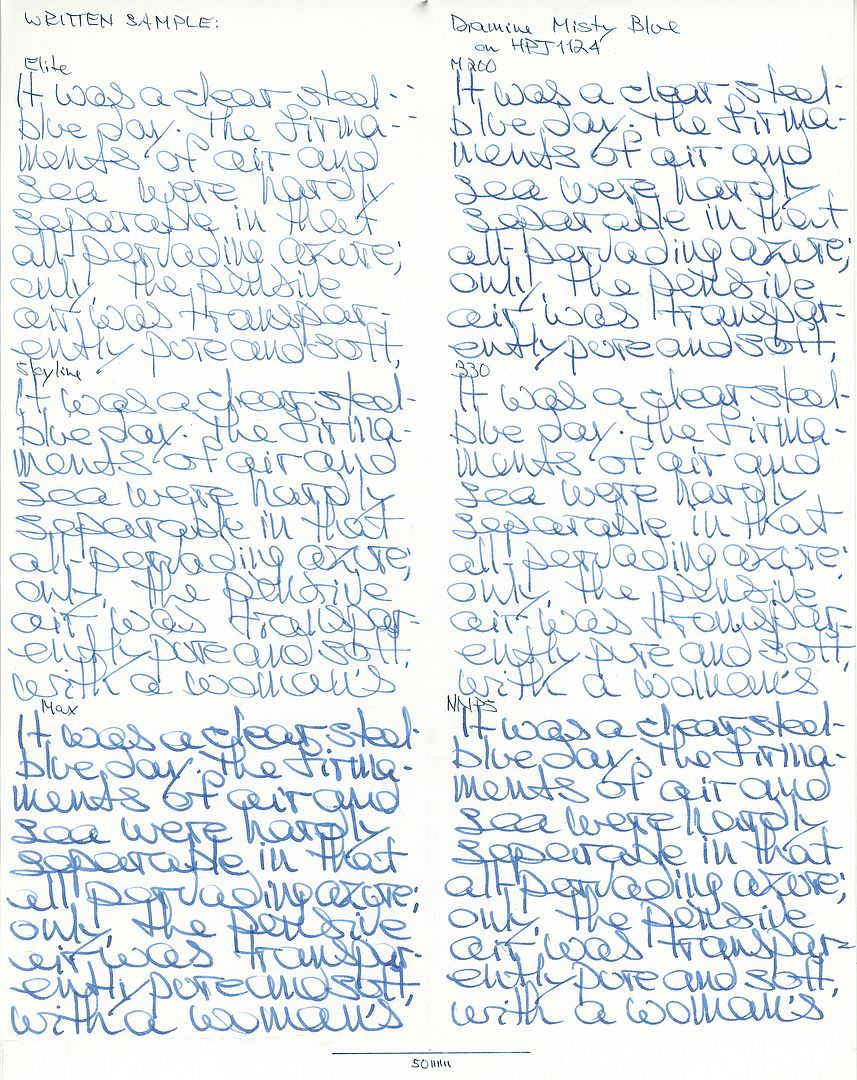 WRITTEN SAMPLE:
Elite
It was a clear steel-
blue day. The firma-
ments of air and
sea were hardly
separable in that
all-pervading azure;
only, the pensive
air was transpar-
ently pure and soft,
Skyline
It was a clear steel-
blue day. The firma-
ments of air and
sea were hardly
separable in that
all-pervading azure;
only, the pensive
air was transpar-
ently pure and soft,
with a woman's
Max
It was a clear steel-
blue day. The firma-
ments of air and
sea were hardly
separable in that
all-pervading azure;
only, the pensive
air was transpar-
ently pure and soft,
with a woman's
Diamine Misty Blue
on HPJ1124
M200
It was a clear steel-
blue day. The firma-
ments of air and
sea were hardly
separable in that
all-pervading azure;
only, the pensive
air was transpar-
ently pure and soft,
330
It was a clear steel-
blue day. The firma-
ments of air and
sea were hardly
separable in that
all-pervading azure;
only, the pensive
air was transpar-
ently pure and soft,
with a woman's
NNPS
It was a clear steel-
blue day. The firma-
ments of air and
sea were hardly
separable in that
all-pervading azure;
only, the pensive
air was transpar-
ently pure and soft,
with a woman's